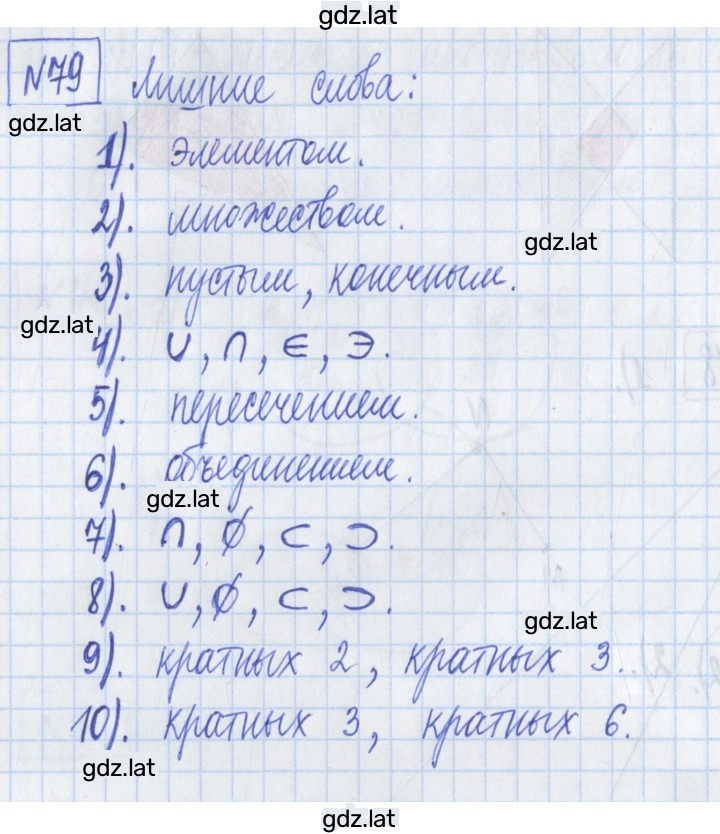 gdz.lat
№79 Лишние слова:
gdz.lat
1). элементом.
2). множеством.
gdz.lat
3). пустым, конечным.
gdz.lat
4). ∪, ∩, ∈, ∋.
5). пересечением.
6). объединением.
gdz.lat
7). ∩, ∅, ⊂, ⊃.
8). ∪, ∅, ⊂, ⊃.
gdz.lat
9). кратных 2, кратных 3.
10). кратных 3, кратных 6.
gdz.lat
gdz.lat